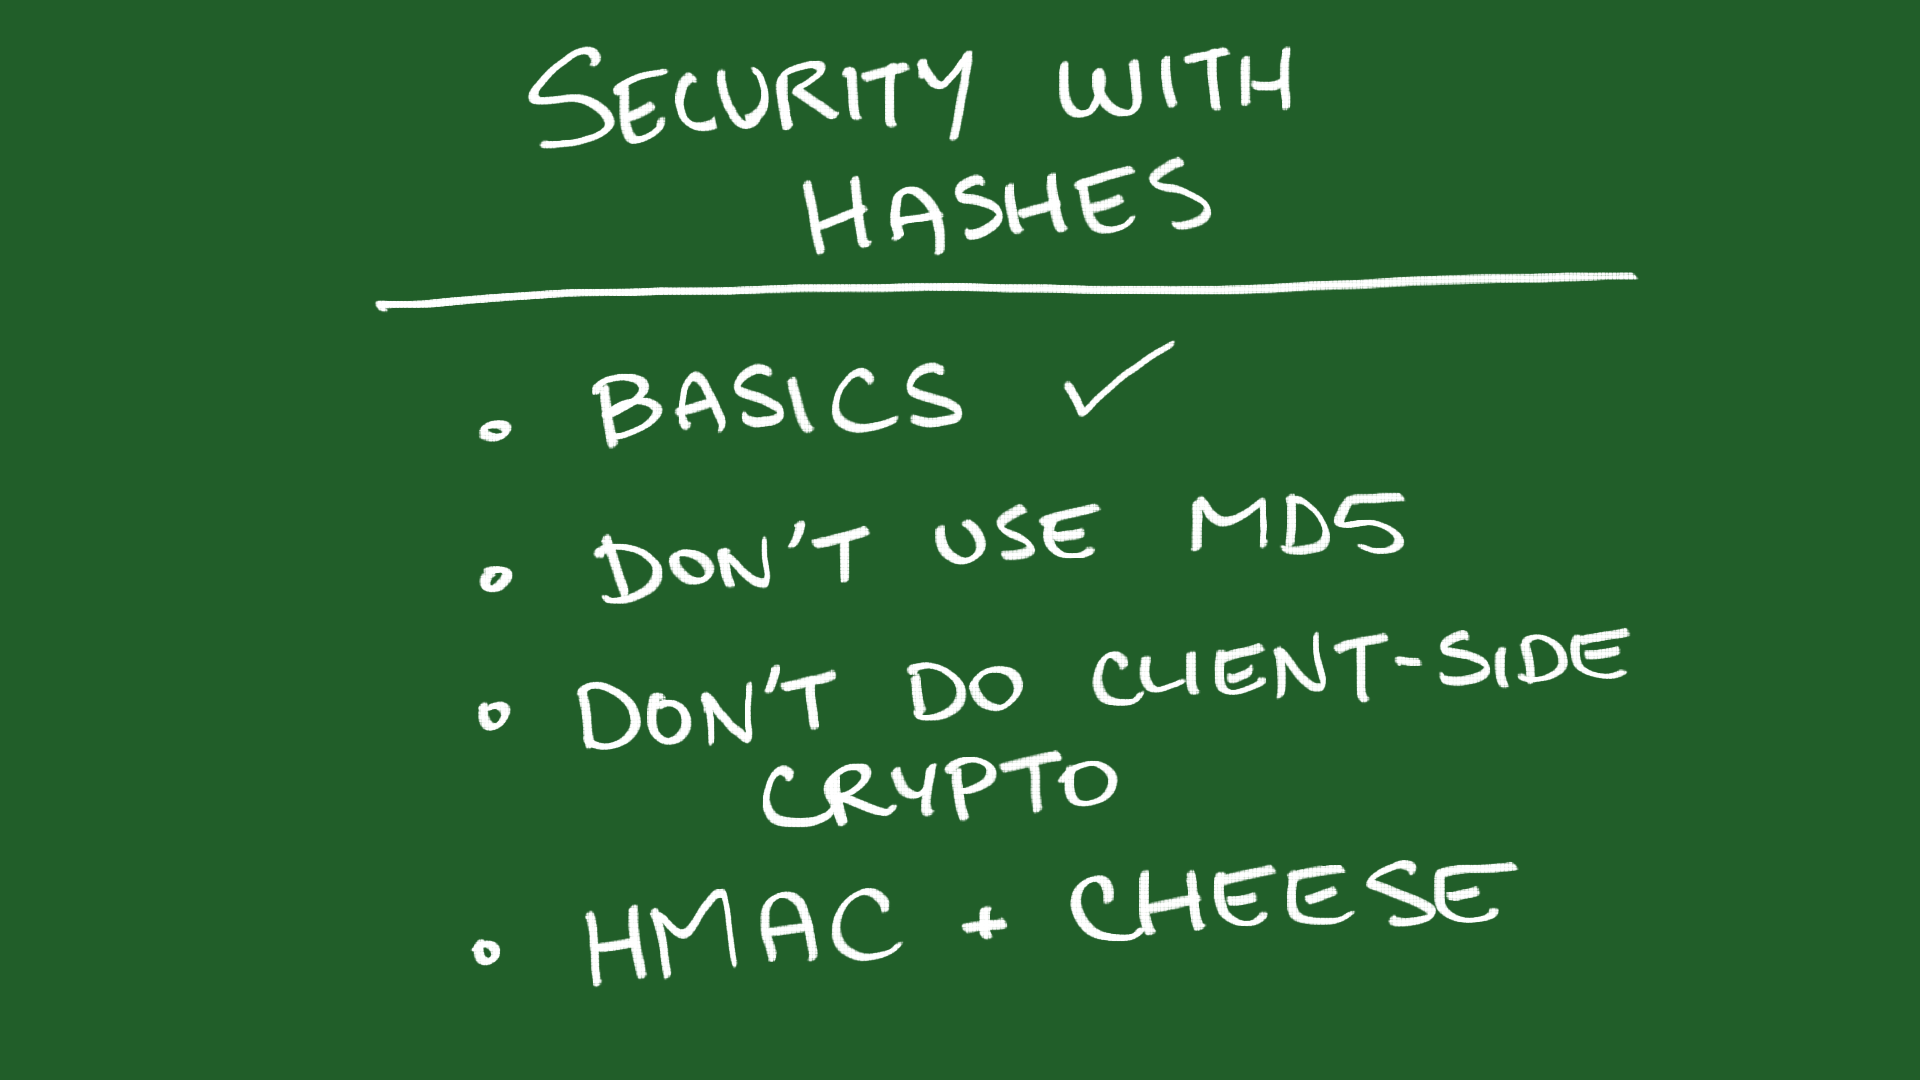 SECURITY WITH
HASHES
◦ BASICS ✓
◦ DON'T USE MD5
◦ DON'T DO CLIENT-SIDE
CRYPTO
◦ HMAC + CHEESE